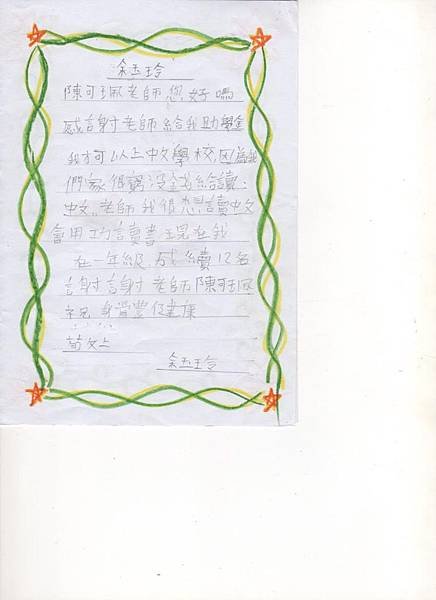 余玉玲
陳可珮老師您好嗎
感謝老師給我助學金
我才可以上中文學校,因為我
們家很窮沒錢給讀.
中文..老師我很想讀中文
會用功讀書現在我
在一年級 成績12名
謝謝老師陳可珮
祝 身體 健康
敬上
余玉玲